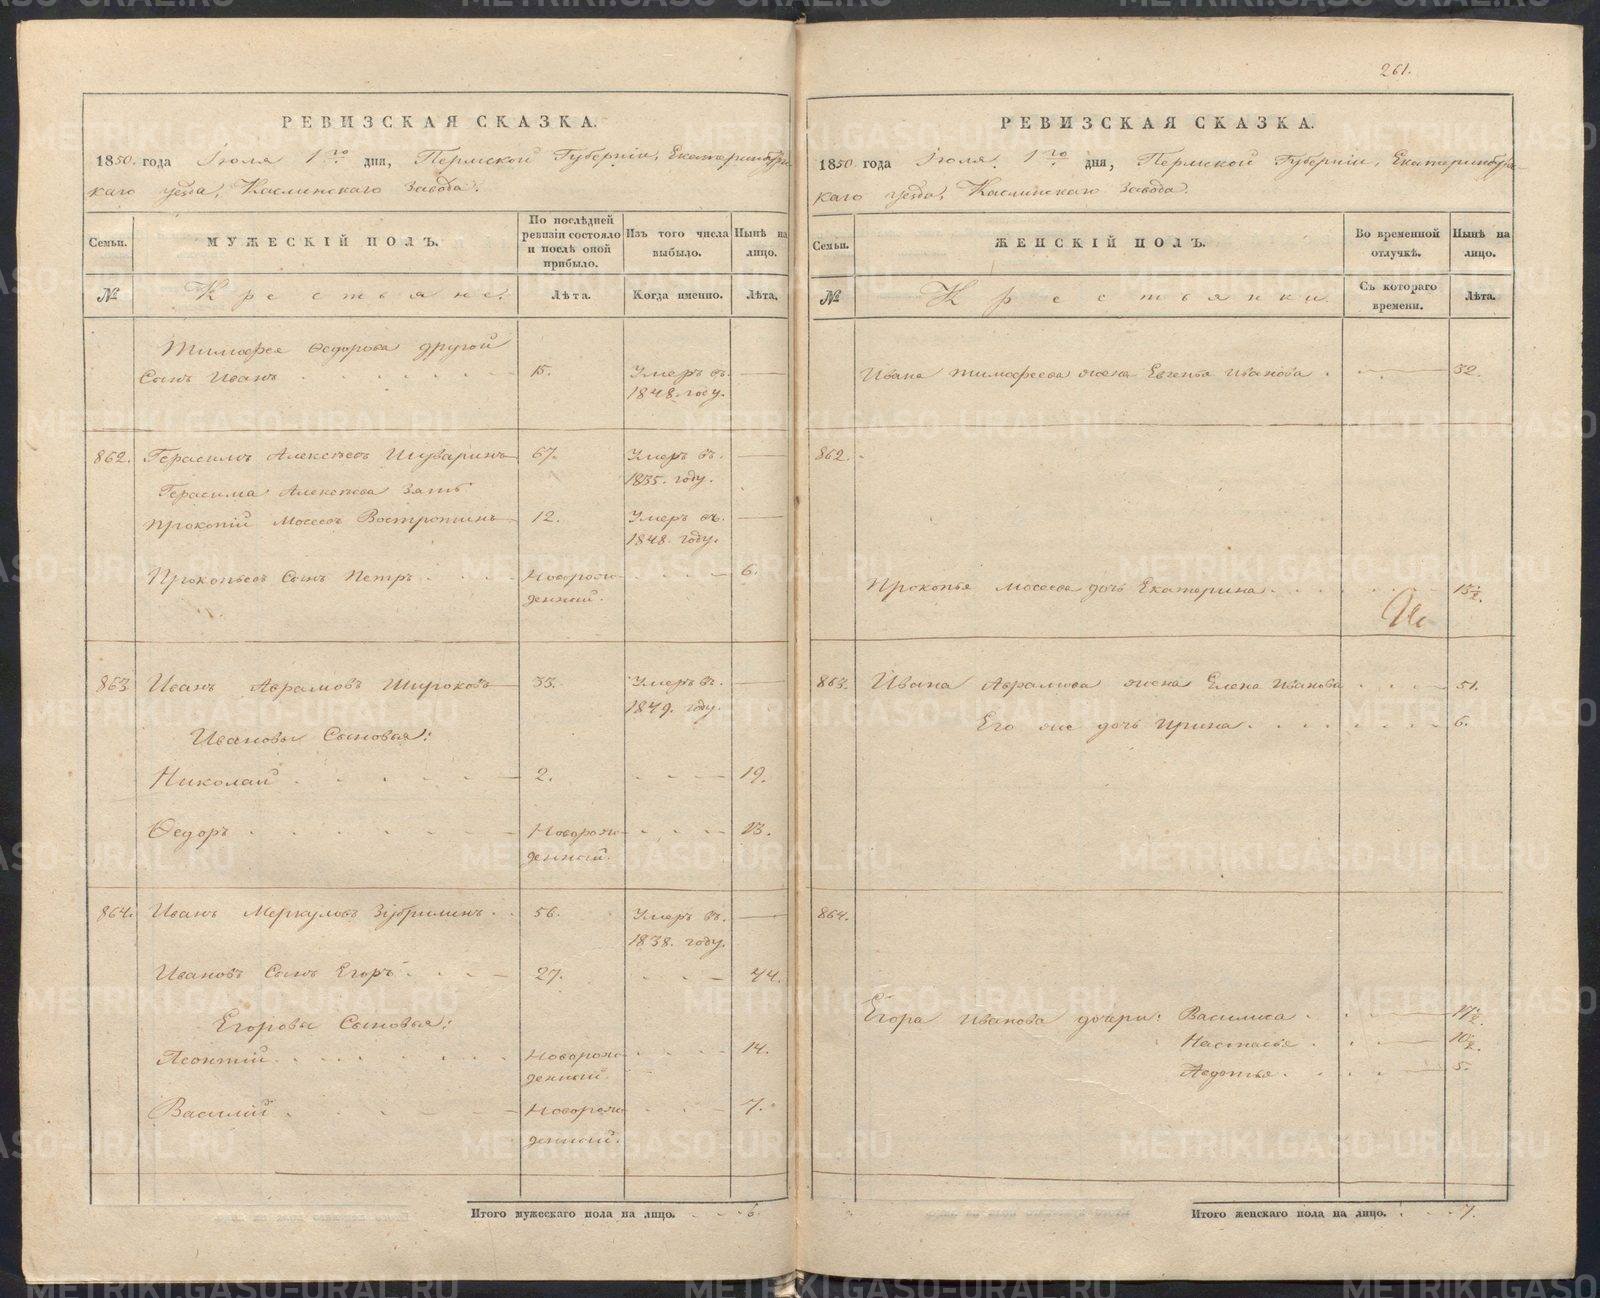 261.
РЕВИЗСКАЯ СКАЗКА.
1850. года Іюля 1го дня, Пермской Губерніи, Екатеринбургс-
каго уѣзда, Каслинскаго Завода.
Семьи.
МУЖЕСКІЙ ПОЛЪ.
По послѣдней ревизіи состояло и послѣ оной прибыло.
Изъ того числа выбыло.
Нынѣ на лицо.
№
Крестьяне.
Лѣта.
Когда именно.
Лѣта.
Тимофея Ѳедорова другой
Сынъ Иванъ 15. Умеръ въ —
1848. году.
862. Герасимъ Алексѣевъ Шуваринъ 67. Умеръ въ. —
1835. году.
Герасима Алексѣева Зять
Прокопій Мосеевъ Востротинъ 12. Умеръ въ. —
1848. году.
Прокопьевъ Сынъ Петръ Новорож- 6.
денный.
863 Иванъ Аврамовъ Широковъ 33. Умеръ въ. —
1849. году.
Ивановы Сыновья:
Николай 2. 19.
Ѳедоръ Новорож- 13.
денный.
864. Иванъ Меркуловъ Зубрилинъ 56. Умеръ въ. —
1838. году.
Ивановъ Сынъ Егоръ 27. 44.
Егоровы Сыновья:
Леонтій Новорож- 14.
денный.
Василій Новорож- 7.
денный.
Итого мужескаго пола на лицо. 6.
РЕВИЗСКАЯ СКАЗКА.
1850. года Іюля. 1го дня, Пермской Губерніи, Екатеринбургс-
каго уѣзда, Каслинскаго Завода.
Семьи.
ЖЕНСКІЙ ПОЛЪ.
Во временной отлучкѣ.
Нынѣ на лицо.
№
Крестьянки.
Съ котораго времени.
Лѣта.
Ивана Тимофеева жена Евгенья Иванова 32.
862.
Прокопья Мосеева дочь Екатерина 15½.
863. Ивана Аврамова жена Елена Иванова 51.
Его же дочь Ирина 6.
864.
Егора Иванова дочери: Василиса 17½.
Настасья 10½.
Авдотья 5.
Итого женскаго пола на лицо. 7.
METRIKI.GASO-URAL.RU